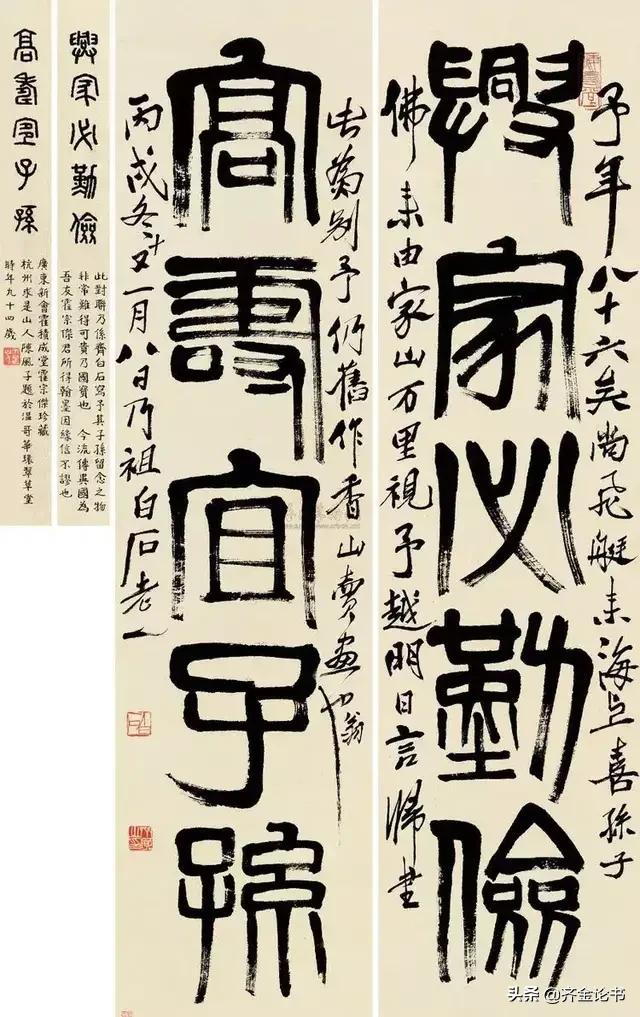 予年八十六矣尚飛艇来海上喜孫子
興家必勤儉
佛来由家山万里視予越明日言歸書
此為别予仍舊作香山賣畫翁
高壽宜子孫
丙戌冬十又一月八日乃祖白石老人
興家必勤儉
此對聯乃係齊白石寫予其子孫留念之物
非常難得可貴乃國寶也 今流傳異國為
吾友霍宗傑君所得翰墨因緣信不謬也
高壽宜子孫
廣東新會霍積成堂霍宗傑珍藏
杭州求是山人陳風子題於温哥華臻翠草堂
時年九十四歲
头条 @齐金论书